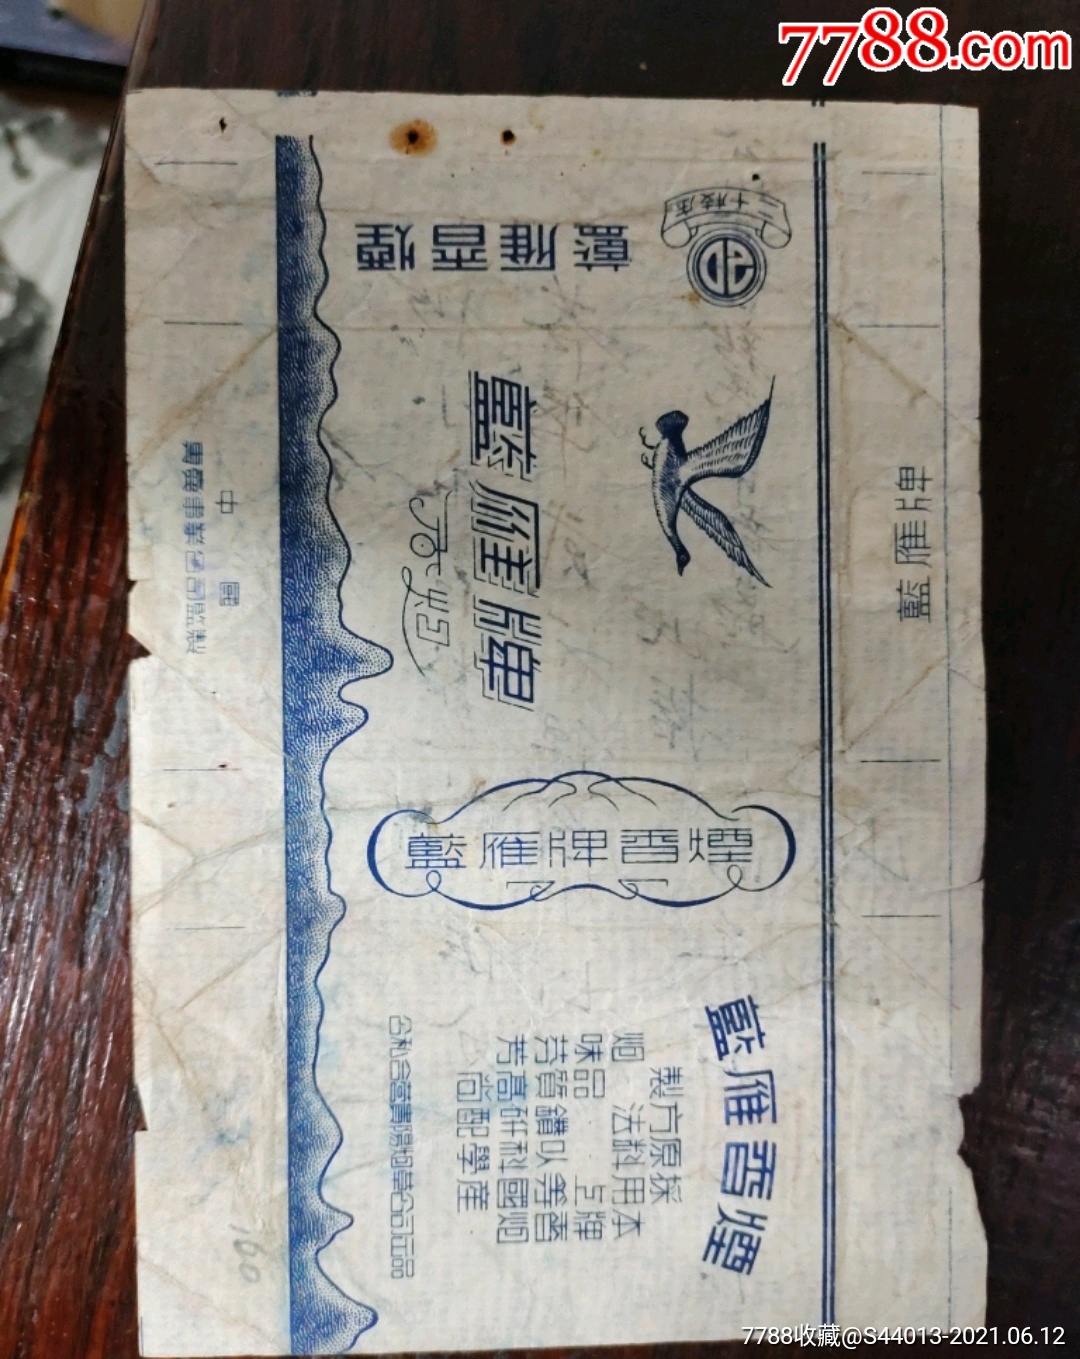 7788.com
二十枝庄
藍雁香煙
藍雁牌
香烟
藍雁牌
藍雁牌香煙
藍雁香煙
本牌香烟
採用上等國產
原料以科學
方法鑽研配
製品質高尚
烟味芬芳
公私合營貴陽烟草公司出品
中國
專賣事業公司監製
160
7788收藏@S44013-2021.06.12